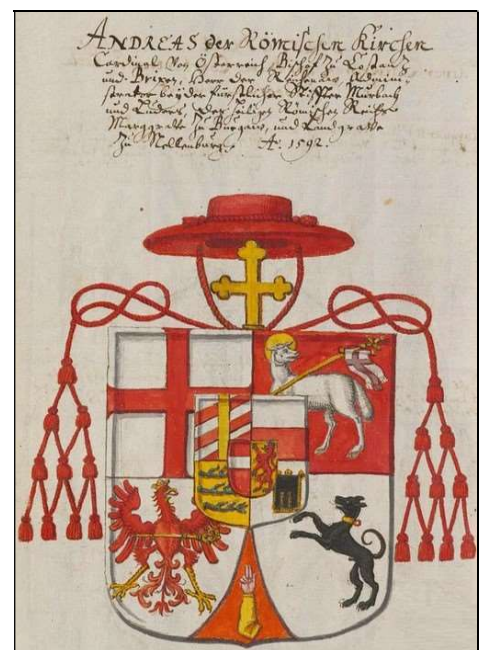 ANDREAS der Römischen Kirchen
Cardinal Von Österreich, Bischof Zu Costantz
und Brixen, Herr der Reichenaw, Admini-
strator beyder Fürstlicher Stiffter Murbach
und Luders, des heiligen Römischen Reichs
Marggraffe zu Burgaw, und Landgraffe
Zu Nellenburg. A: 1592.